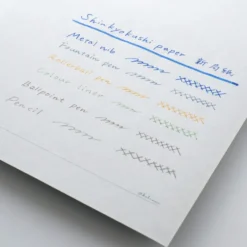 Shinkyokushi paper
Metal nib
Fountain pen
pen
Colour liner
Ballpoint pen
Pencil